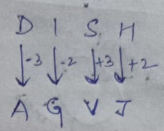 D I S H
-3 -2 +3 +2
A G V J